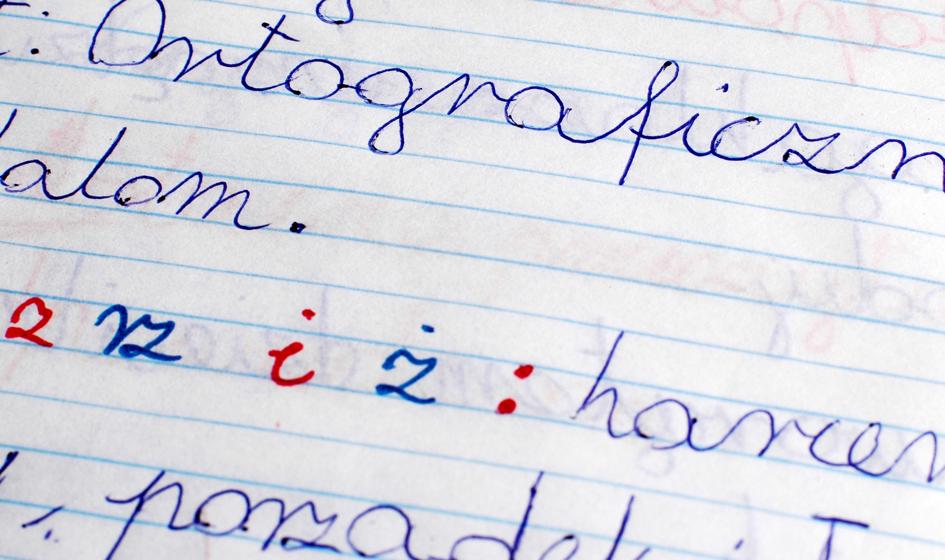 Ortograficzn
alom.
z rz i ż: harcer
, porządek i I